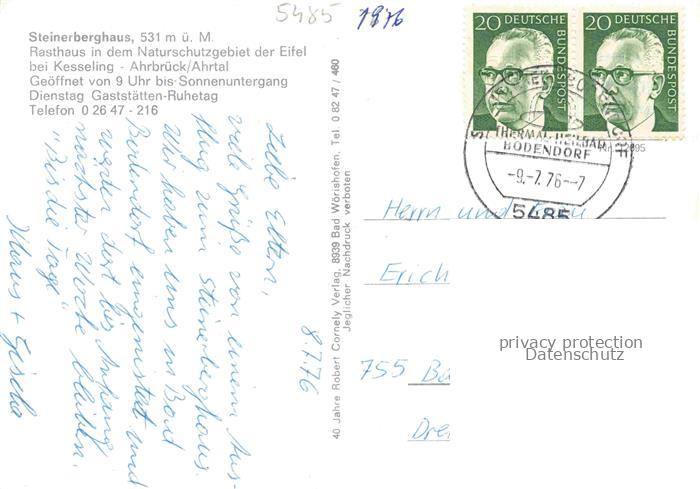 5485
1976
Steinerberghaus, 531 m ü. M.
Rasthaus in dem Naturschutzgebiet der Eifel
bei Kesseling - Ahrbrück/Ahrtal
Geöffnet von 9 Uhr bis Sonnenuntergang
Dienstag Gaststätten-Ruhetag
Telefon 0 26 47 - 216
8.7.76
Liebe Eltern,
viele Grüße von einem Aus-
flug zum Steinerberghaus.
Wir haben uns in Bad
Bodendorf einquartiert und
werden dort bis Anfang
nächster Woche bleiben.
"Bis die Tage"
Klaus + Gisela
40 Jahre Robert Cornely Verlag, 8939 Bad Wörishofen, Tel. 0 82 47 / 460
Jeglicher Nachdruck verboten
20 DEUTSCHE BUNDESPOST
20 DEUTSCHE BUNDESPOST
THERMAL-HEILBAD
BODENDORF
-9.-7.76--7
5485
Herrn und Frau
Erich
755
privacy protection
Datenschutz